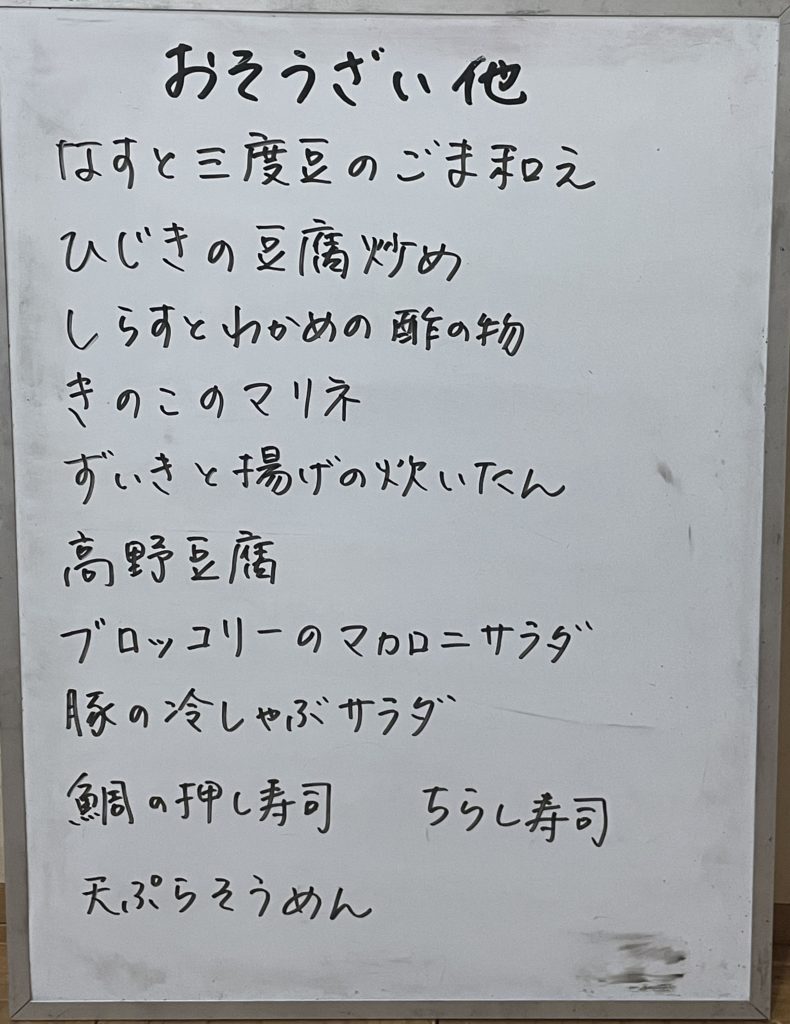 おそうざい他
なすと三度豆のごま和え
ひじきの豆腐炒め
しらすとわかめの酢の物
きのこのマリネ
ずいきと揚げの炊いたん
高野豆腐
ブロッコリーのマカロニサラダ
豚の冷しゃぶサラダ
鯛の押し寿司　ちらし寿司
天ぷらそうめん